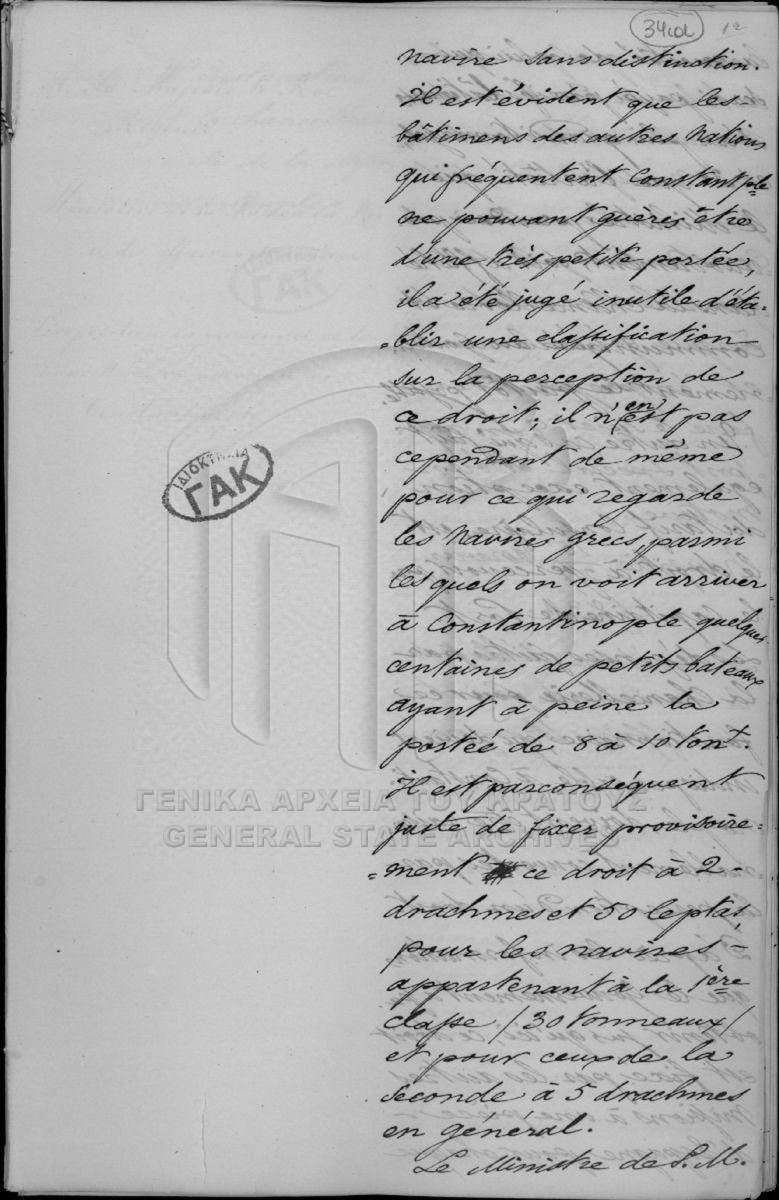 34 a 1a
navire sans distinction.
Il est évident que les-
bâtimens des autres Nations
qui fréquentent Constantple
ne pouvant guères être
d'une très petite portée,
il a été jugé inutile d'éta-
-blir une classification
sur la perception de
ce droit; il n'en est pas
cependant de même
pour ce qui regarde
les Navires grecs, parmi
lesquels on voit arriver
à Constantinople quelques
centaines de petits bateaux
ayant à peine la
portée de 8 à 10 tont.
Il est parconséquent
juste de fixer provisoire=
=ment ce droit à 2-
drachmes et 50 leptas,
pour les navires-
appartenant à la 1ère
classe /30 tonneaux/
et pour ceux de la
seconde à 5 drachmes
en général.
Le Ministre de S. M.
ΙΔΙΟΚΤΗΣΙΑ
ΓΑΚ
ΓΑΚ
ΓΕΝΙΚΑ ΑΡΧΕΙΑ ΤΟΥ ΚΡΑΤΟΥΣ
GENERAL STATE ARCHIVES